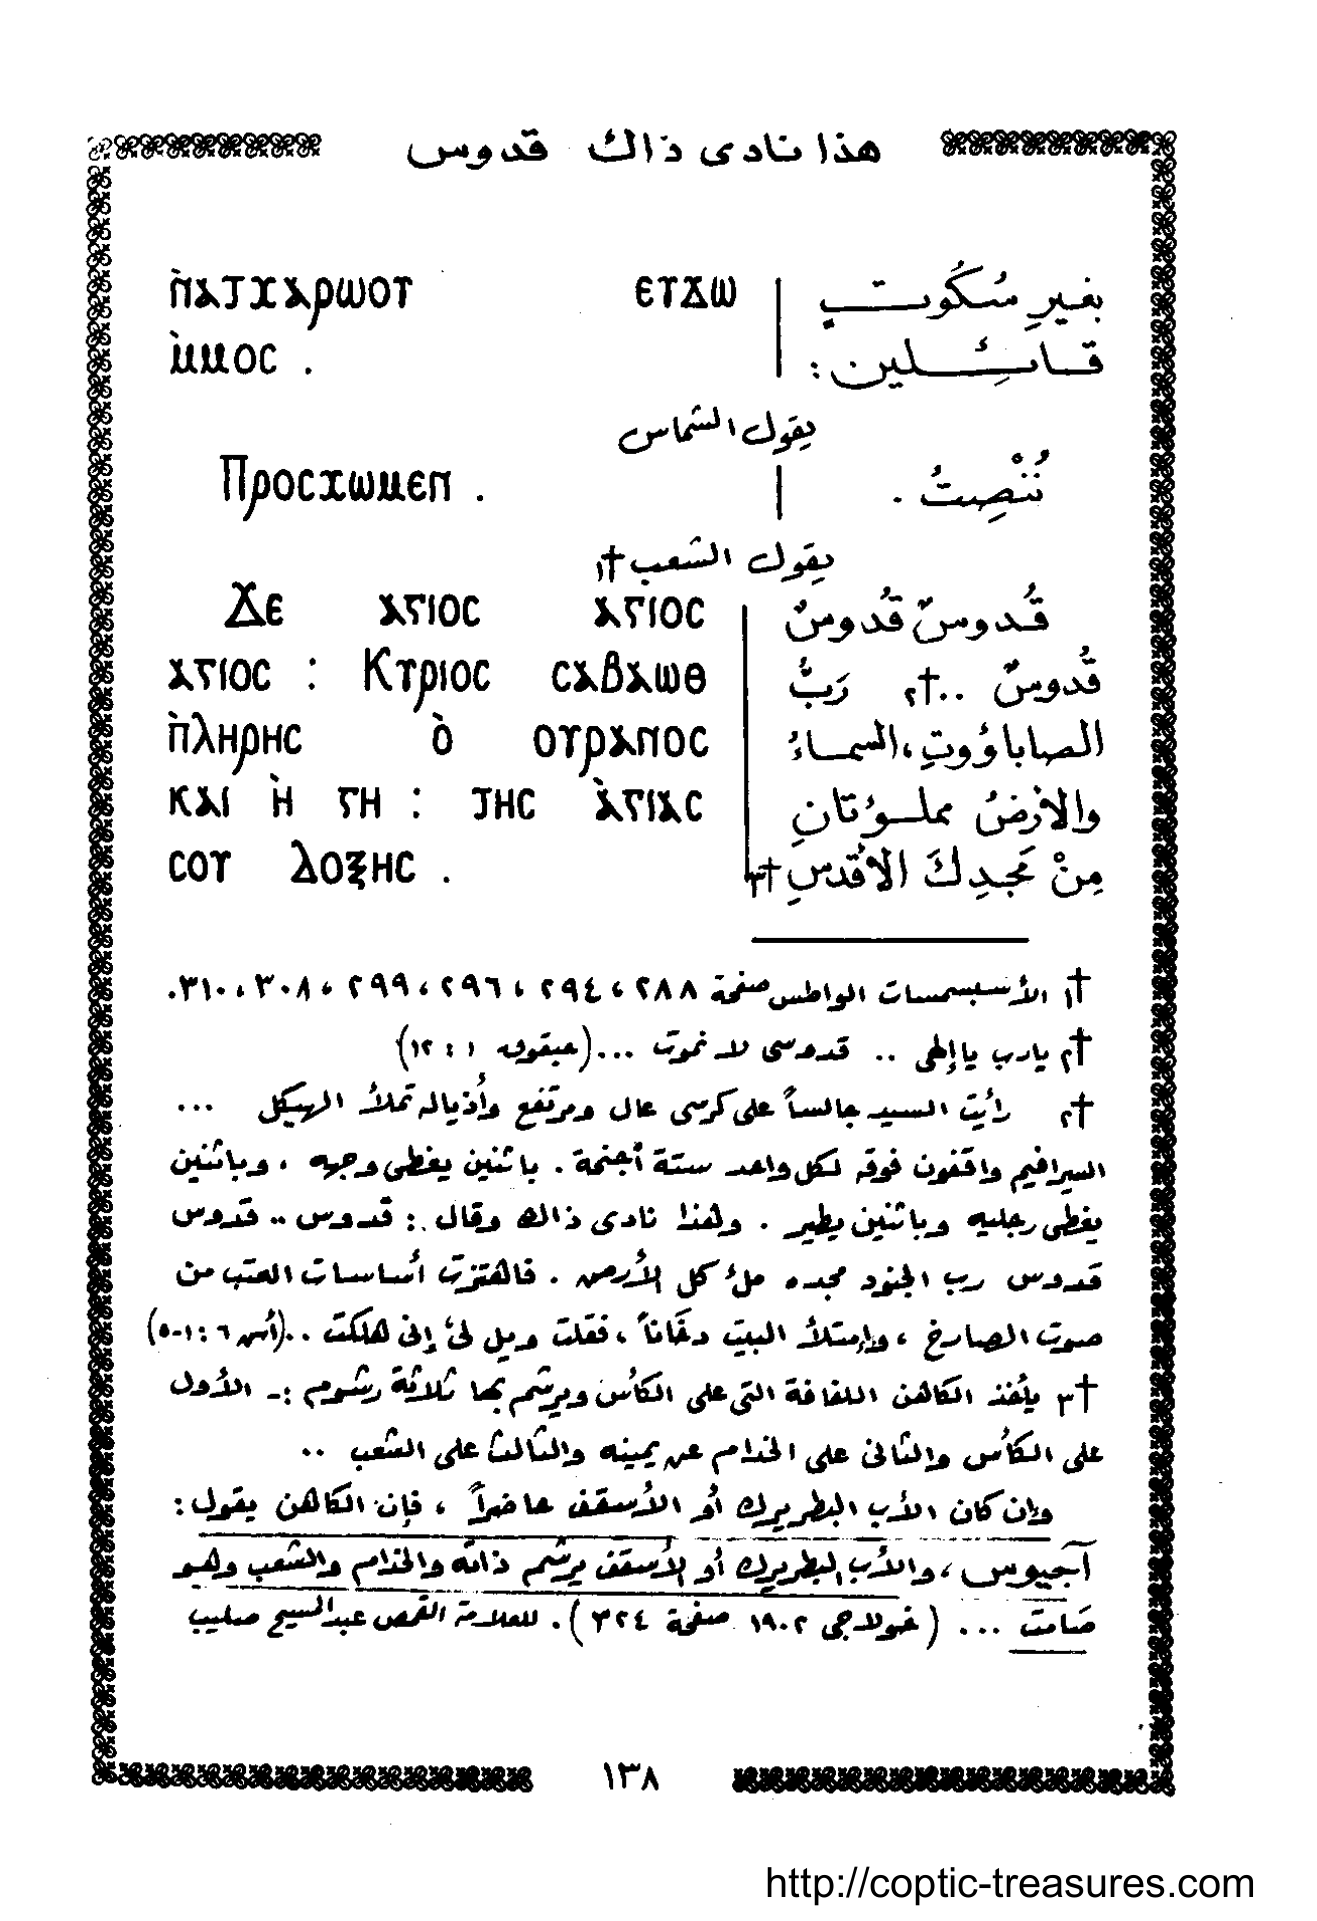 هذا نادى ذاك قدوس
ⲛ̀ⲁⲧⲭⲁⲣⲱⲟⲩ ⲉⲩϫⲱ | بغيرِ سُكُوتٍ
ⲙ̀ⲙⲟⲥ . | قائِلين :
يقول الشماس
Ⲡⲣⲟⲥⲭⲱⲙⲉⲛ . | نُنْصِتُ .
يقول الشعب †١
Ϫⲉ ⲁⲅⲓⲟⲥ ⲁⲅⲓⲟⲥ | قُدوسٌ قُدوسٌ
ⲁⲅⲓⲟⲥ : Ⲕⲩⲣⲓⲟⲥ ⲥⲁⲃⲁⲱⲑ | قُدوسٌ ..†٢ رَبُّ
ⲡ̀ⲗⲏⲣⲏⲥ ⲟ̀ ⲟⲩⲣⲁⲛⲟⲥ | الصاباؤوتِ ، السماءُ
ⲕⲁⲓ ⲏ̀ ⲅⲏ : ⲧⲏⲥ ⲁ̀ⲅⲓⲁⲥ | والأرْضُ مملوءتانِ
ⲥⲟⲩ ⲇⲟⲝⲏⲥ . | مِنْ مَجدِكَ الأقدَسِ †٣
†١ الأسبسمسات الواطس صفحة ٢٨٨ ، ٢٩٤ ، ٢٩٦ ، ٢٩٩ ، ٣٠٨ ، ٣١٠ .
†٢ يارب يا إلهى .. قدوسى لا نموت ...(حبقوق ١ : ١٢)
†٢ رأيت السيد جالساً على كرسى عال ومرتفع وأذياله تملأ الهيكل ...
السيرافيم واقفون فوقه لكل واحد ستة أجنحة . باثنين يغطى وجهه ، وباثنين
يغطى رجليه وباثنين يطير . وهذا نادى ذاك وقال : قدوس .. قدوس
قدوس رب الجنود مجده ملء كل الأرض . فاهتزت أساسات العتب من
صوت الصارخ ، وإمتلأ البيت دخاناً ، فقلت ويل لى إنى هلكت ..(أش ٦ : ١-٥)
†٣ يأخذ الكاهن اللفافة التى على الكأس ويرشم بها ثلاثة رشوم :- الأول
على الكأس والثانى على الخدام عن يمينه والثالث على الشعب ..
وإن كان الأب البطريرك أو الأسقف حاضراً ، فإن الكاهن يقول :
آجيوس ، والأب البطريرك أو الأسقف يرشم ذاته والخدام والشعب وهو
صامت ... (خولاجى ١٩٠٢ صفحة ٣٢٤) . للعلامة القمص عبدالمسيح صليب
١٣٨
http://coptic-treasures.com